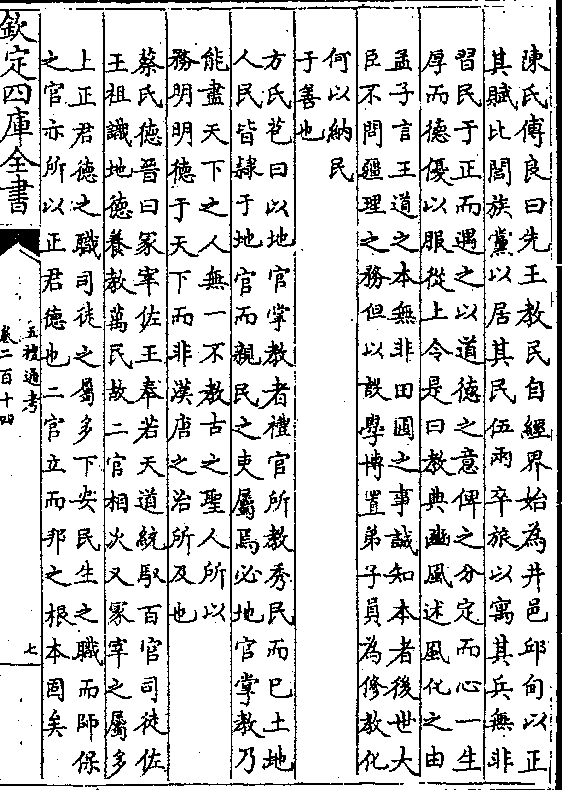 陳氏傅良曰先王教民自經界始為井邑邱甸以正
其賦比閭族黨以居其民伍兩卒旅以寓其兵無非
習民于正而遇之以道德之意俾之分定而心一生
厚而德優以服從上令是曰教典豳風述風化之由
孟子言王道之本無非田圃之事誠知本者後世大
臣不問疆理之務但以設學博置弟子員為修教化
何以納民
于善也
方氏苞曰以地官掌教者禮官所教秀民而巳土地
人民皆隸于地官而親民之吏屬焉必地官掌教乃
能盡天下之人無一不教古之聖人所以
務明明德于天下而非漢唐之治所及也
蔡氏德晉曰冢宰佐王奉若天道統馭百官司徒佐
王祖識地德養教萬民故二官相次又冢宰之屬多
上正君德之職司徒之屬多下安民生之職而師保
之官亦所以正君德也二官立而邦之根本固矣
欽定四庫全書
五禮通考
卷二百十四
七